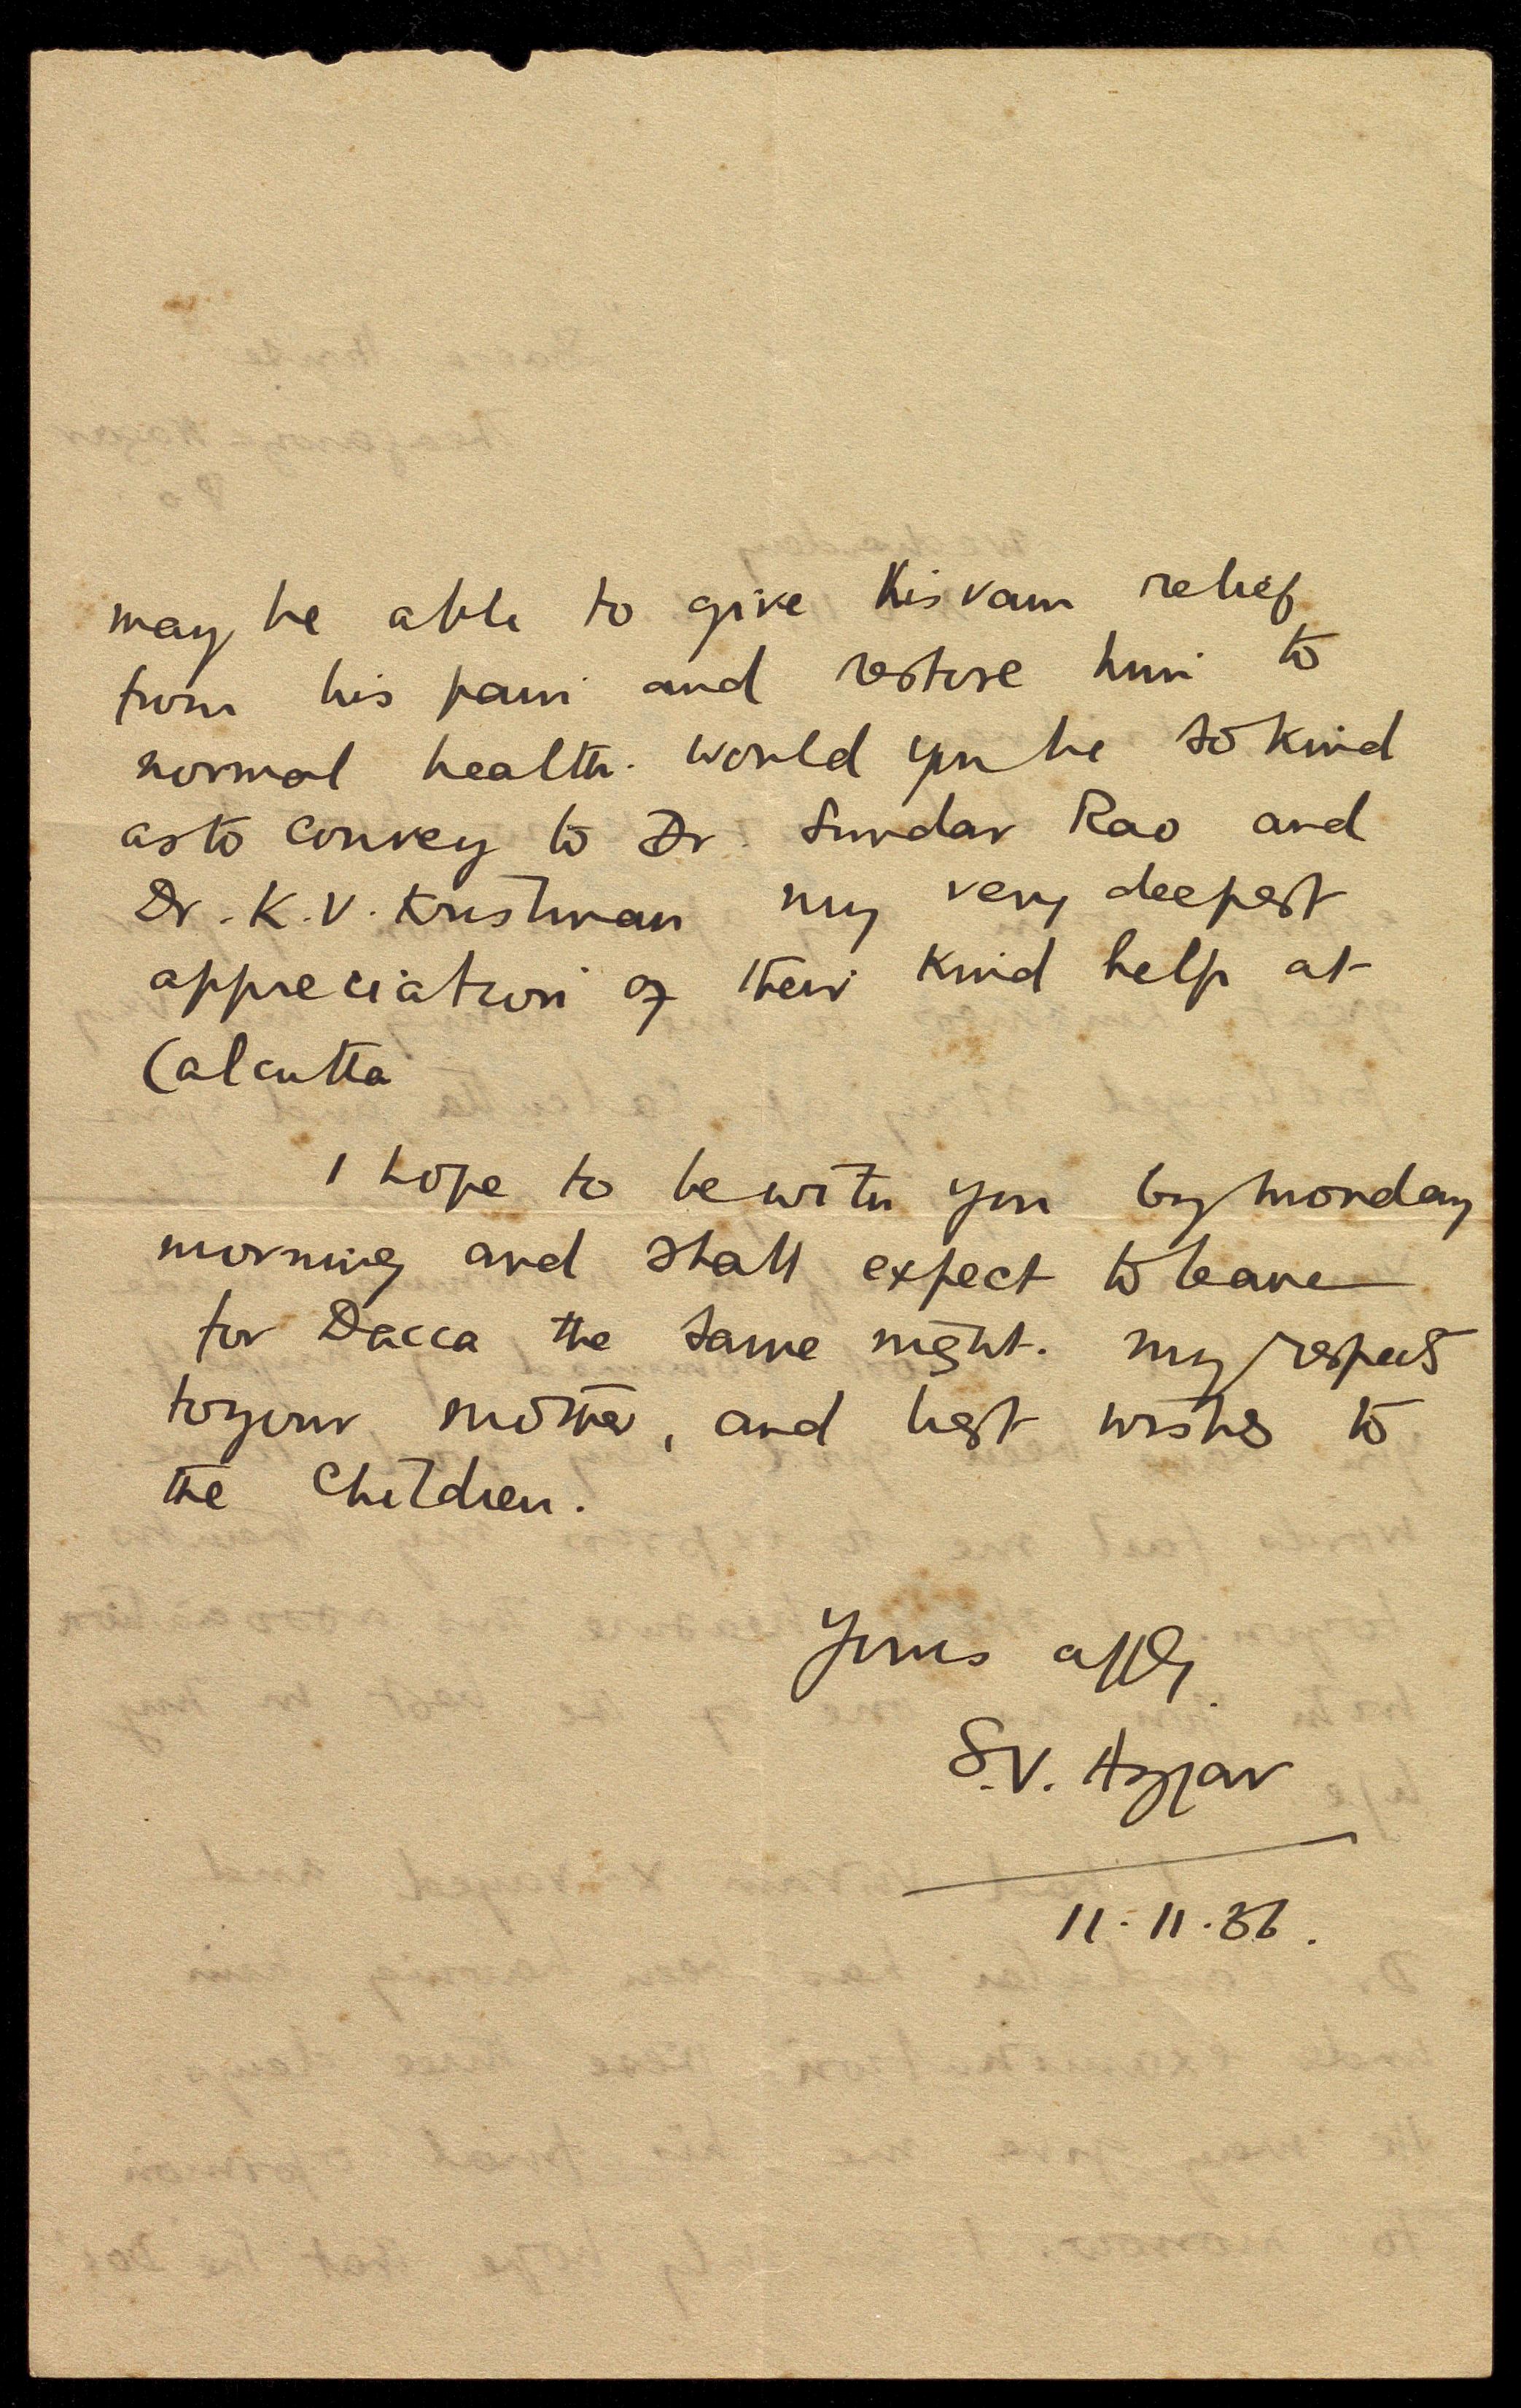 may be able to give Kisvam relief
from his pain and restore him to
normal health. Would you be so kind
as to convey to Dr. Sundar Rao and
Dr. K. V. Krishnan my very deepest
appreciation of their kind help at
Calcutta
I hope to be with you by monday
morning and shall expect to leave
for Dacca the same night. My respects
to your mother, and best wishes to
the Children.
Yours affly.
S. V. Ayyar
11.11.36.